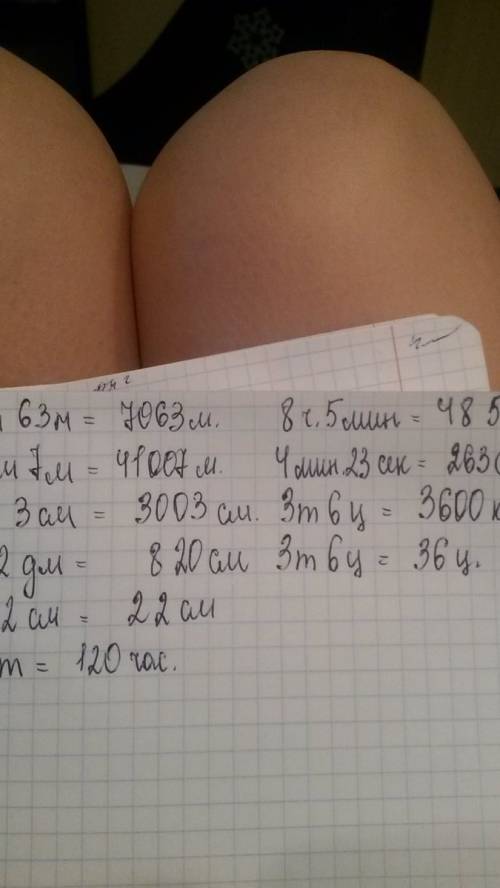 63м = 7063 м. 8 ч. 5 мин = 485
м 7м = 41007 м. 4 мин. 23 сек = 263
3 см = 3003 см. 3т 6ц = 3600 к
2 дм = 820 см 3т 6ц = 36 ц.
2 см = 22 см
т = 120 час.